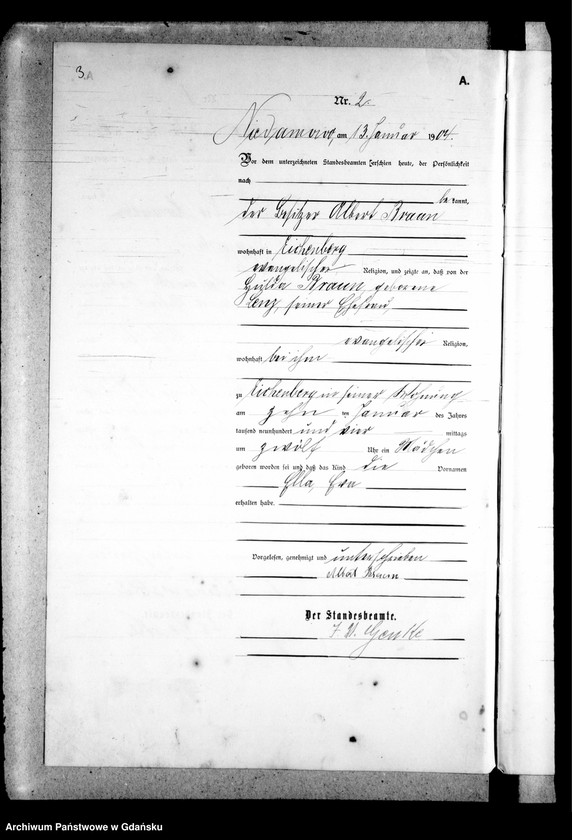 3.
A.
Nr. 2.
Niedamowo, am 13. Januar 1904.
Vor dem unterzeichneten Standesbeamten erschien heute, der Persönlichkeit
nach
be kannt,
der Besitzer Albert Braun
wohnhaft in Eichenberg
evangelischer Religion, und zeigte an, daß von der
Hulda Braun, geborene
Lenz, seiner Ehefrau,
evangelischer Religion,
wohnhaft bei ihm
zu Eichenberg in seiner Wohnung
am zehn ten Januar des Jahres
tausend neunhundert und vier mittags
um zwölf Uhr ein Mädchen
geboren worden sei und daß das Kind die Vornamen
Ella, Eva
erhalten habe.
Vorgelesen, genehmigt und unterschrieben
Albert Braun
Der Standesbeamte.
Archiwum Państwowe w Gdańsku